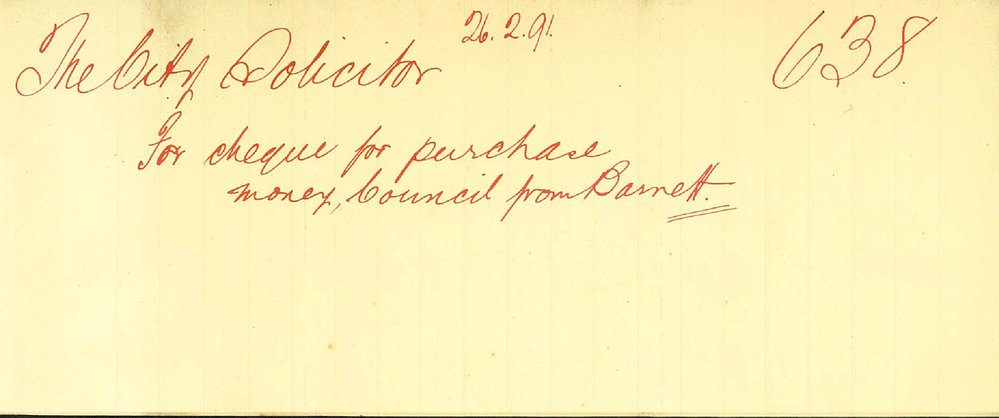 26.2.91.
The City Solicitor 638
For cheque for purchase
money, Council from Barnett.